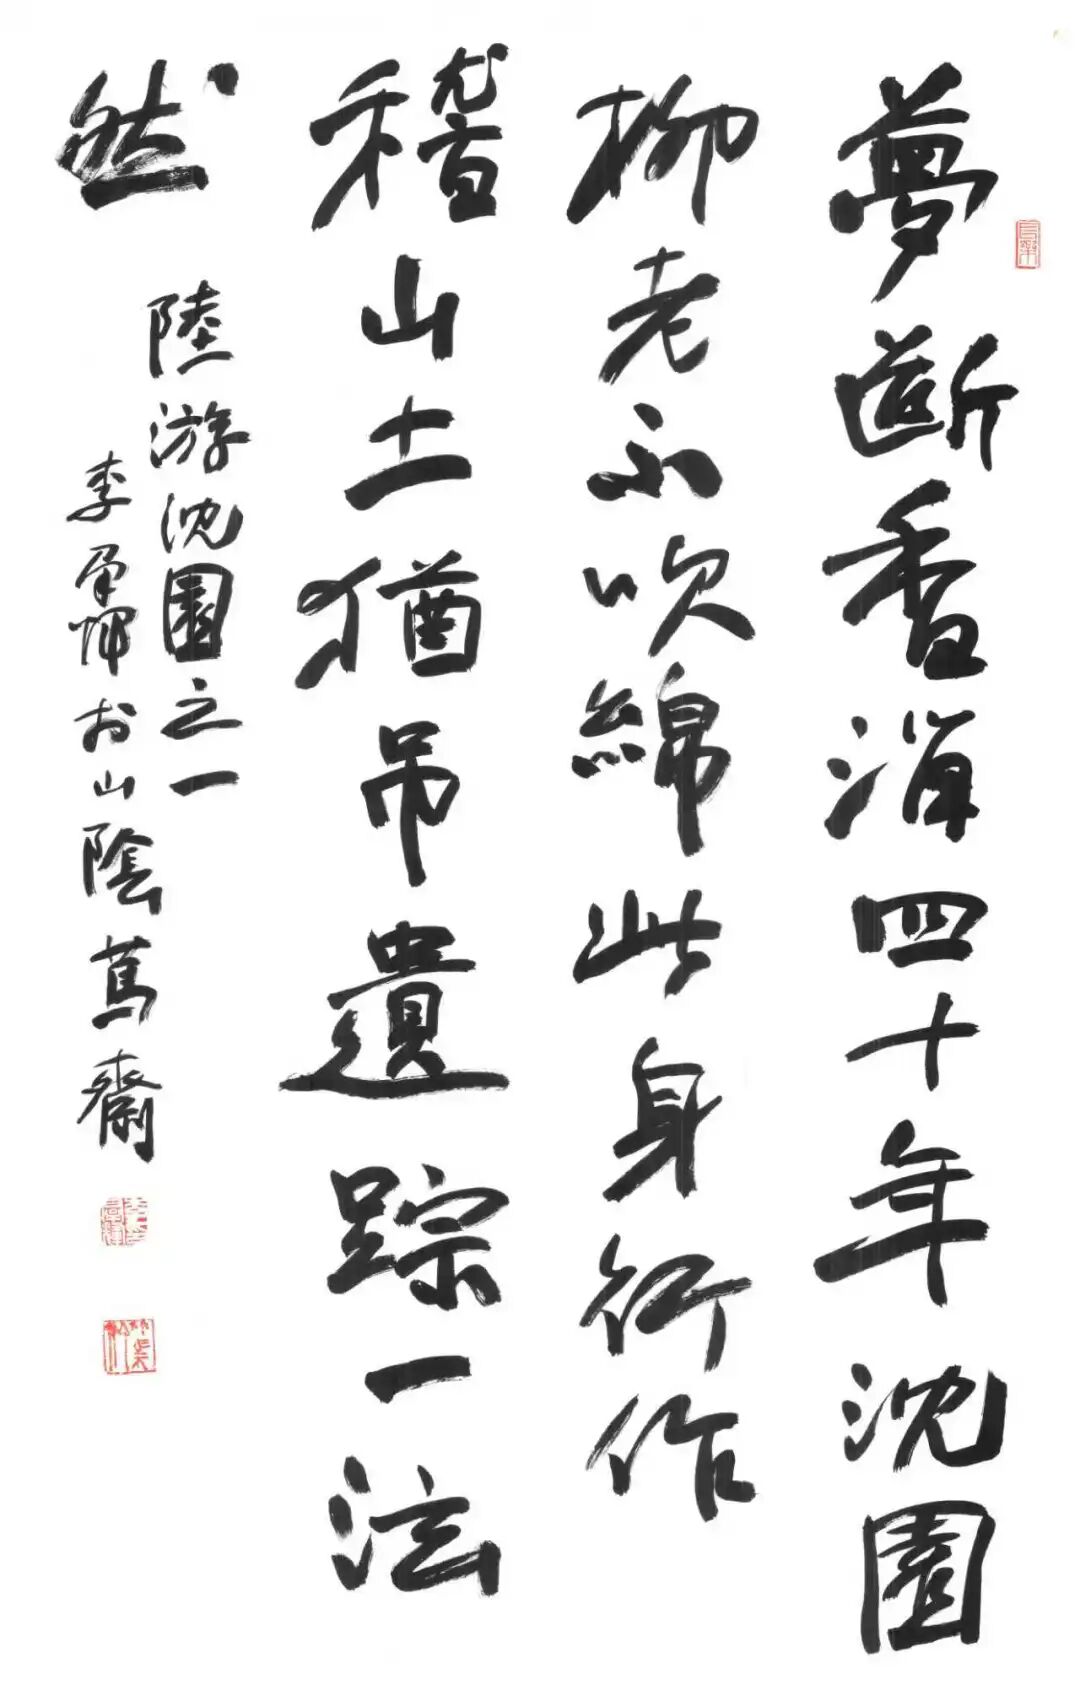 夢斷香消四十年沈園
柳老不吹綿此身行作
稽山土猶吊遺踪一泫
然
陸游沈園之一
李 於山陰蔦齋